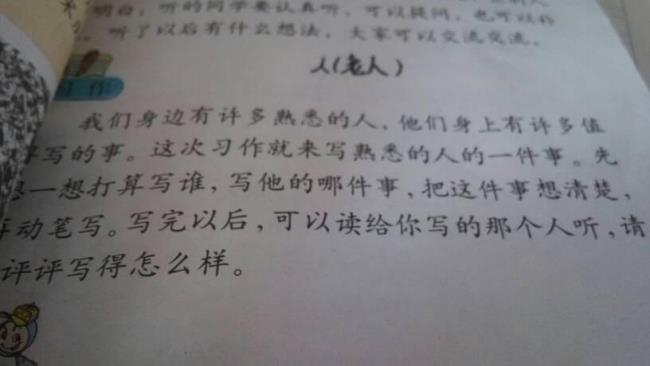 明白；听的同学要认真听，可以提问，也可以补
听了以后有什么想法，大家可以交流交流。
人(老人)
习作
我们身边有许多熟悉的人，他们身上有许多值
得写的事。这次习作就来写熟悉的人的一件事。先
想一想打算写谁，写他的哪件事，把这件事想清楚，
再动笔写。写完以后，可以读给你写的那个人听，请
评评写得怎么样。